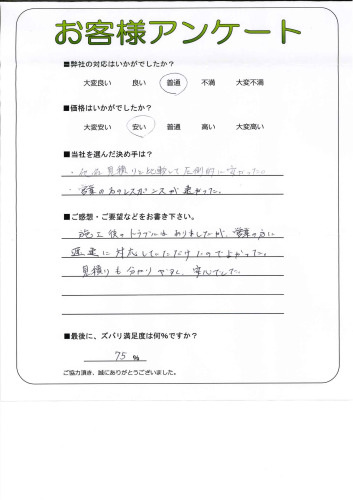 お客様アンケート
■弊社の対応はいかがでしたか？
大変良い 良い 普通 不満 大変不満
■価格はいかがでしたか？
大変安い 安い 普通 高い 大変高い
■当社を選んだ決め手は？
・他店見積りと比較して圧倒的に安かった。
・営業の方のレスポンスが速かった。
■ご感想・ご要望などをお書き下さい。
施工後のトラブルもありましたが、営業の方に
迅速に対応していただけたのでよかった。
見積りも分かりやすく、
■最後に、ズバリ満足度は何％ですか？
75 %
ご協力頂き、誠にありがとうございました。